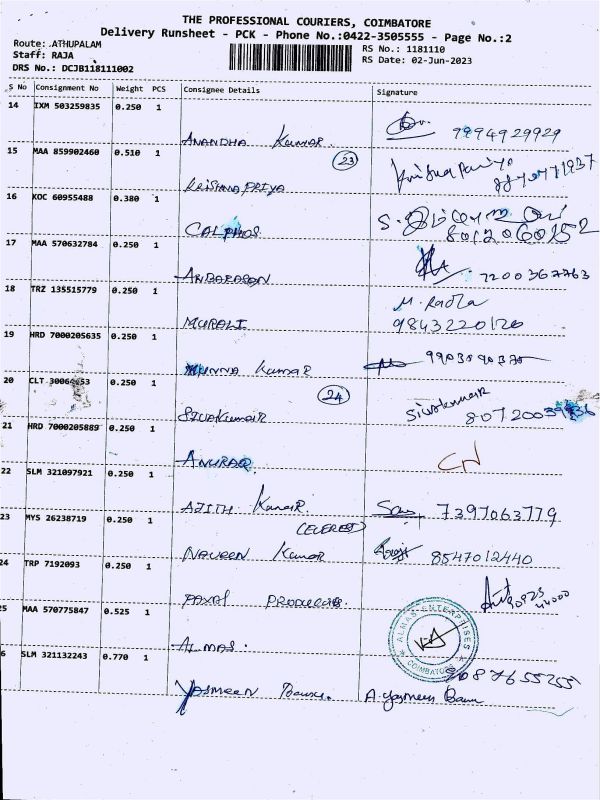 THE PROFESSIONAL COURIERS, COIMBATORE
Delivery Runsheet - PCK - Phone No.:0422-3505555 - Page No.:2
Route: .ATHUPALAM
RS No.: 1181110
Staff: RAJA
RS Date: 02-Jun-2023
DRS No.: DCJB118111002
S No Consignment No Weight PCS Consignee Details Signature
14 IXM 503259835 0.250 1
ANANDHA KUMAR. 9994929929
15 MAA 859902460 0.510 1
23
KRISHNAPRIYA
16 KOC 60955488 0.380 1
CALPHOS 8012060152
17 MAA 570632784 0.250 1
ANBARASAN 7200367763
18 TRZ 135515779 0.250 1
M. Radha
MURALI 9843220120
19 HRD 7000205635 0.250 1
MUNNA KUMAR
20 CLT 0.250 1
24
SIVAKUMAR Sivakumar
21 HRD 7000205889 0.250 1
ANURAG CN
22 SLM 321097921 0.250 1
AJITH KUMAR. 7397063779
23 MYS 26238719 0.250 1
NAVEEN KUMAR 8547012440
24 TRP 7192093 0.250 1
25 MAA 570775847 0.525 1
ALMAS. ALMAS ENTERPRISES
COIMBATORE
6 SLM 321132243 0.770 1
YASMEEN Banu. A. Yasmeen Banu